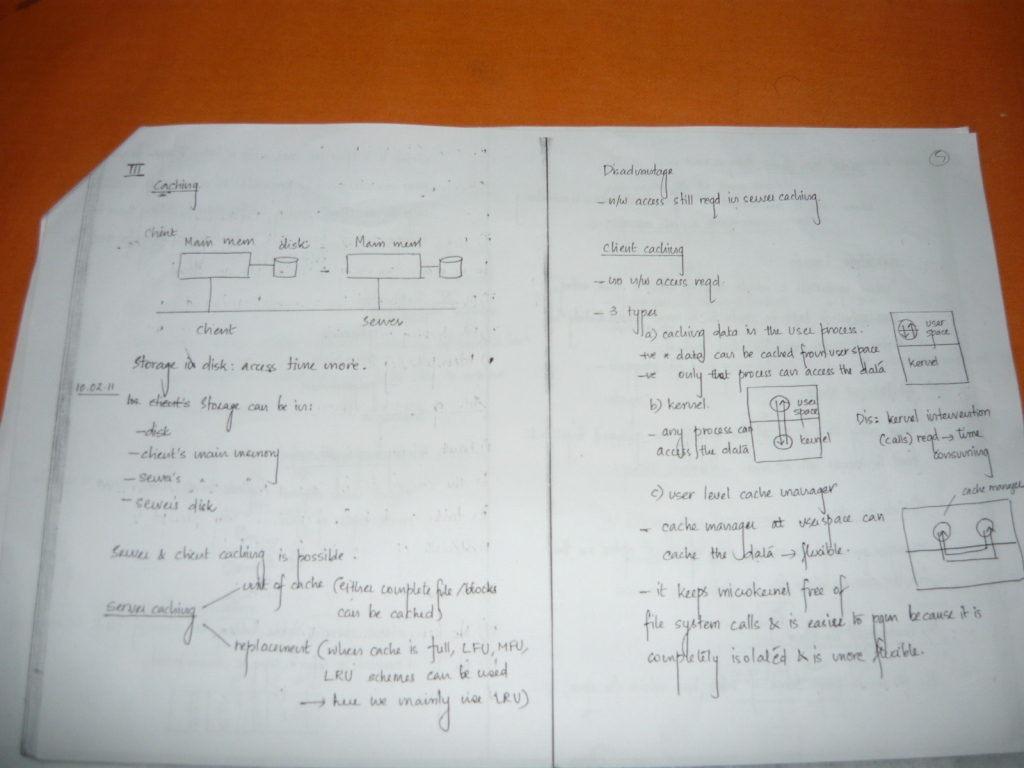 III
Caching
Client
Main mem disk Main mem
client server
Storage in disk: access time more.
10.02.11
In client's Storage can be in:
- disk
- client's main memory
- server's " "
- server's disk
Server & client caching is possible.
Server caching
unit of cache (either complete file/blocks
can be cached)
replacement (when cache is full, LFU, MFU,
LRU schemes can be used
→ here we mainly use LRU)
5
Disadvantage
- n/w access still reqd in server caching
Client caching
- no n/w access reqd
- 3 types
a) caching data in the user process.
+ve * data can be cached from user space
-ve only that process can access the data
user space
kernel
b) kernel.
- any process can
access the data
user space
kernel
Dis: kernel intervention
(calls) reqd → time
consuming
c) user level cache manager
- cache manager at userspace can
cache the data → flexible.
cache manager
- it keeps microkernel free of
file system calls & is easier to pgm because it is
completely isolated & is more flexible.